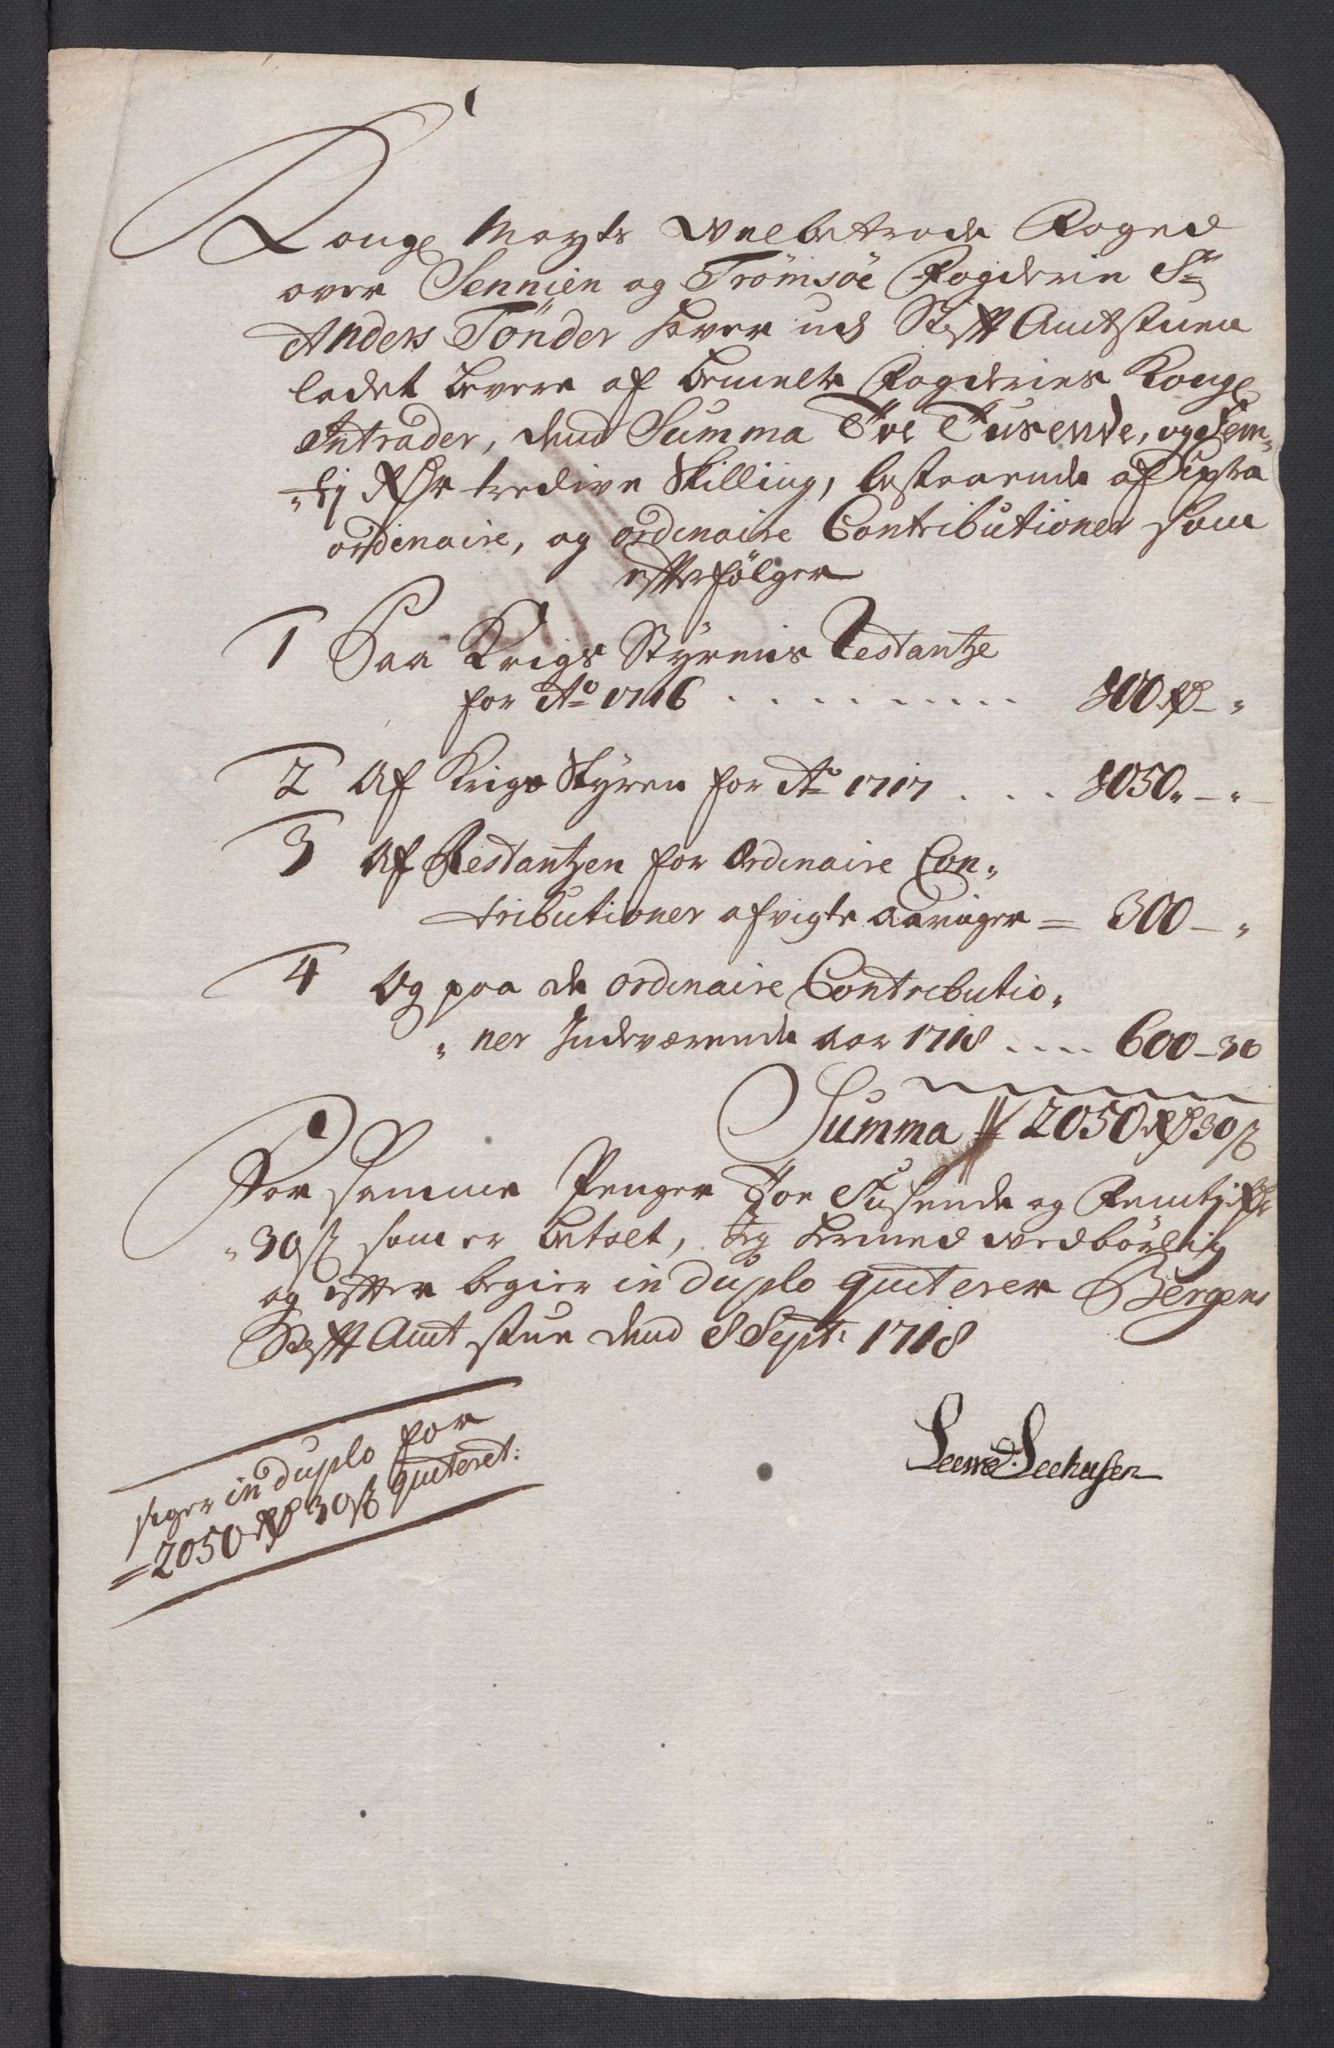 Kongl Mayts Velbetrode Foged
over Sennien og Trömsöe Fogderie Sr
Anders Tönder haver udj Stifft Amtstuen
ladet levere af bemelte Fogderies Kongl
Intrader, dend Summa Toe Tusende, og Fem„
„tj Rdr tredive Skilling, bestaaende af Extra
ordinaire, og ordinaire Contributioner som
efterfölger
1 Paa Krigs Styrens Restantze
for Ao 1716 . . . . . . . . . 100 Rd – „
2 Af Krigs Styren for Ao 1717 . . . 1050„ – „
3 Af Restantzen for Ordinaire Con„
tributioner afvigte Aaringer = 300 – „
4 Og paa de ordinaire Contributio„
„ner Indeværende Aar 1718 .... 600 – 30
Summa 2050 Rd 30 ß
For samme Penger Toe Tusende og Femtj Rdr
„30 ß som er betalt, Jeg hermed vedbörlig
og efter begier in duplo quiterer Bergens
Stifft Amt stue dend 8 Sept: 1718
Seehusen
siger in duplo for
= 2050 Rd 30 ß quiteret: